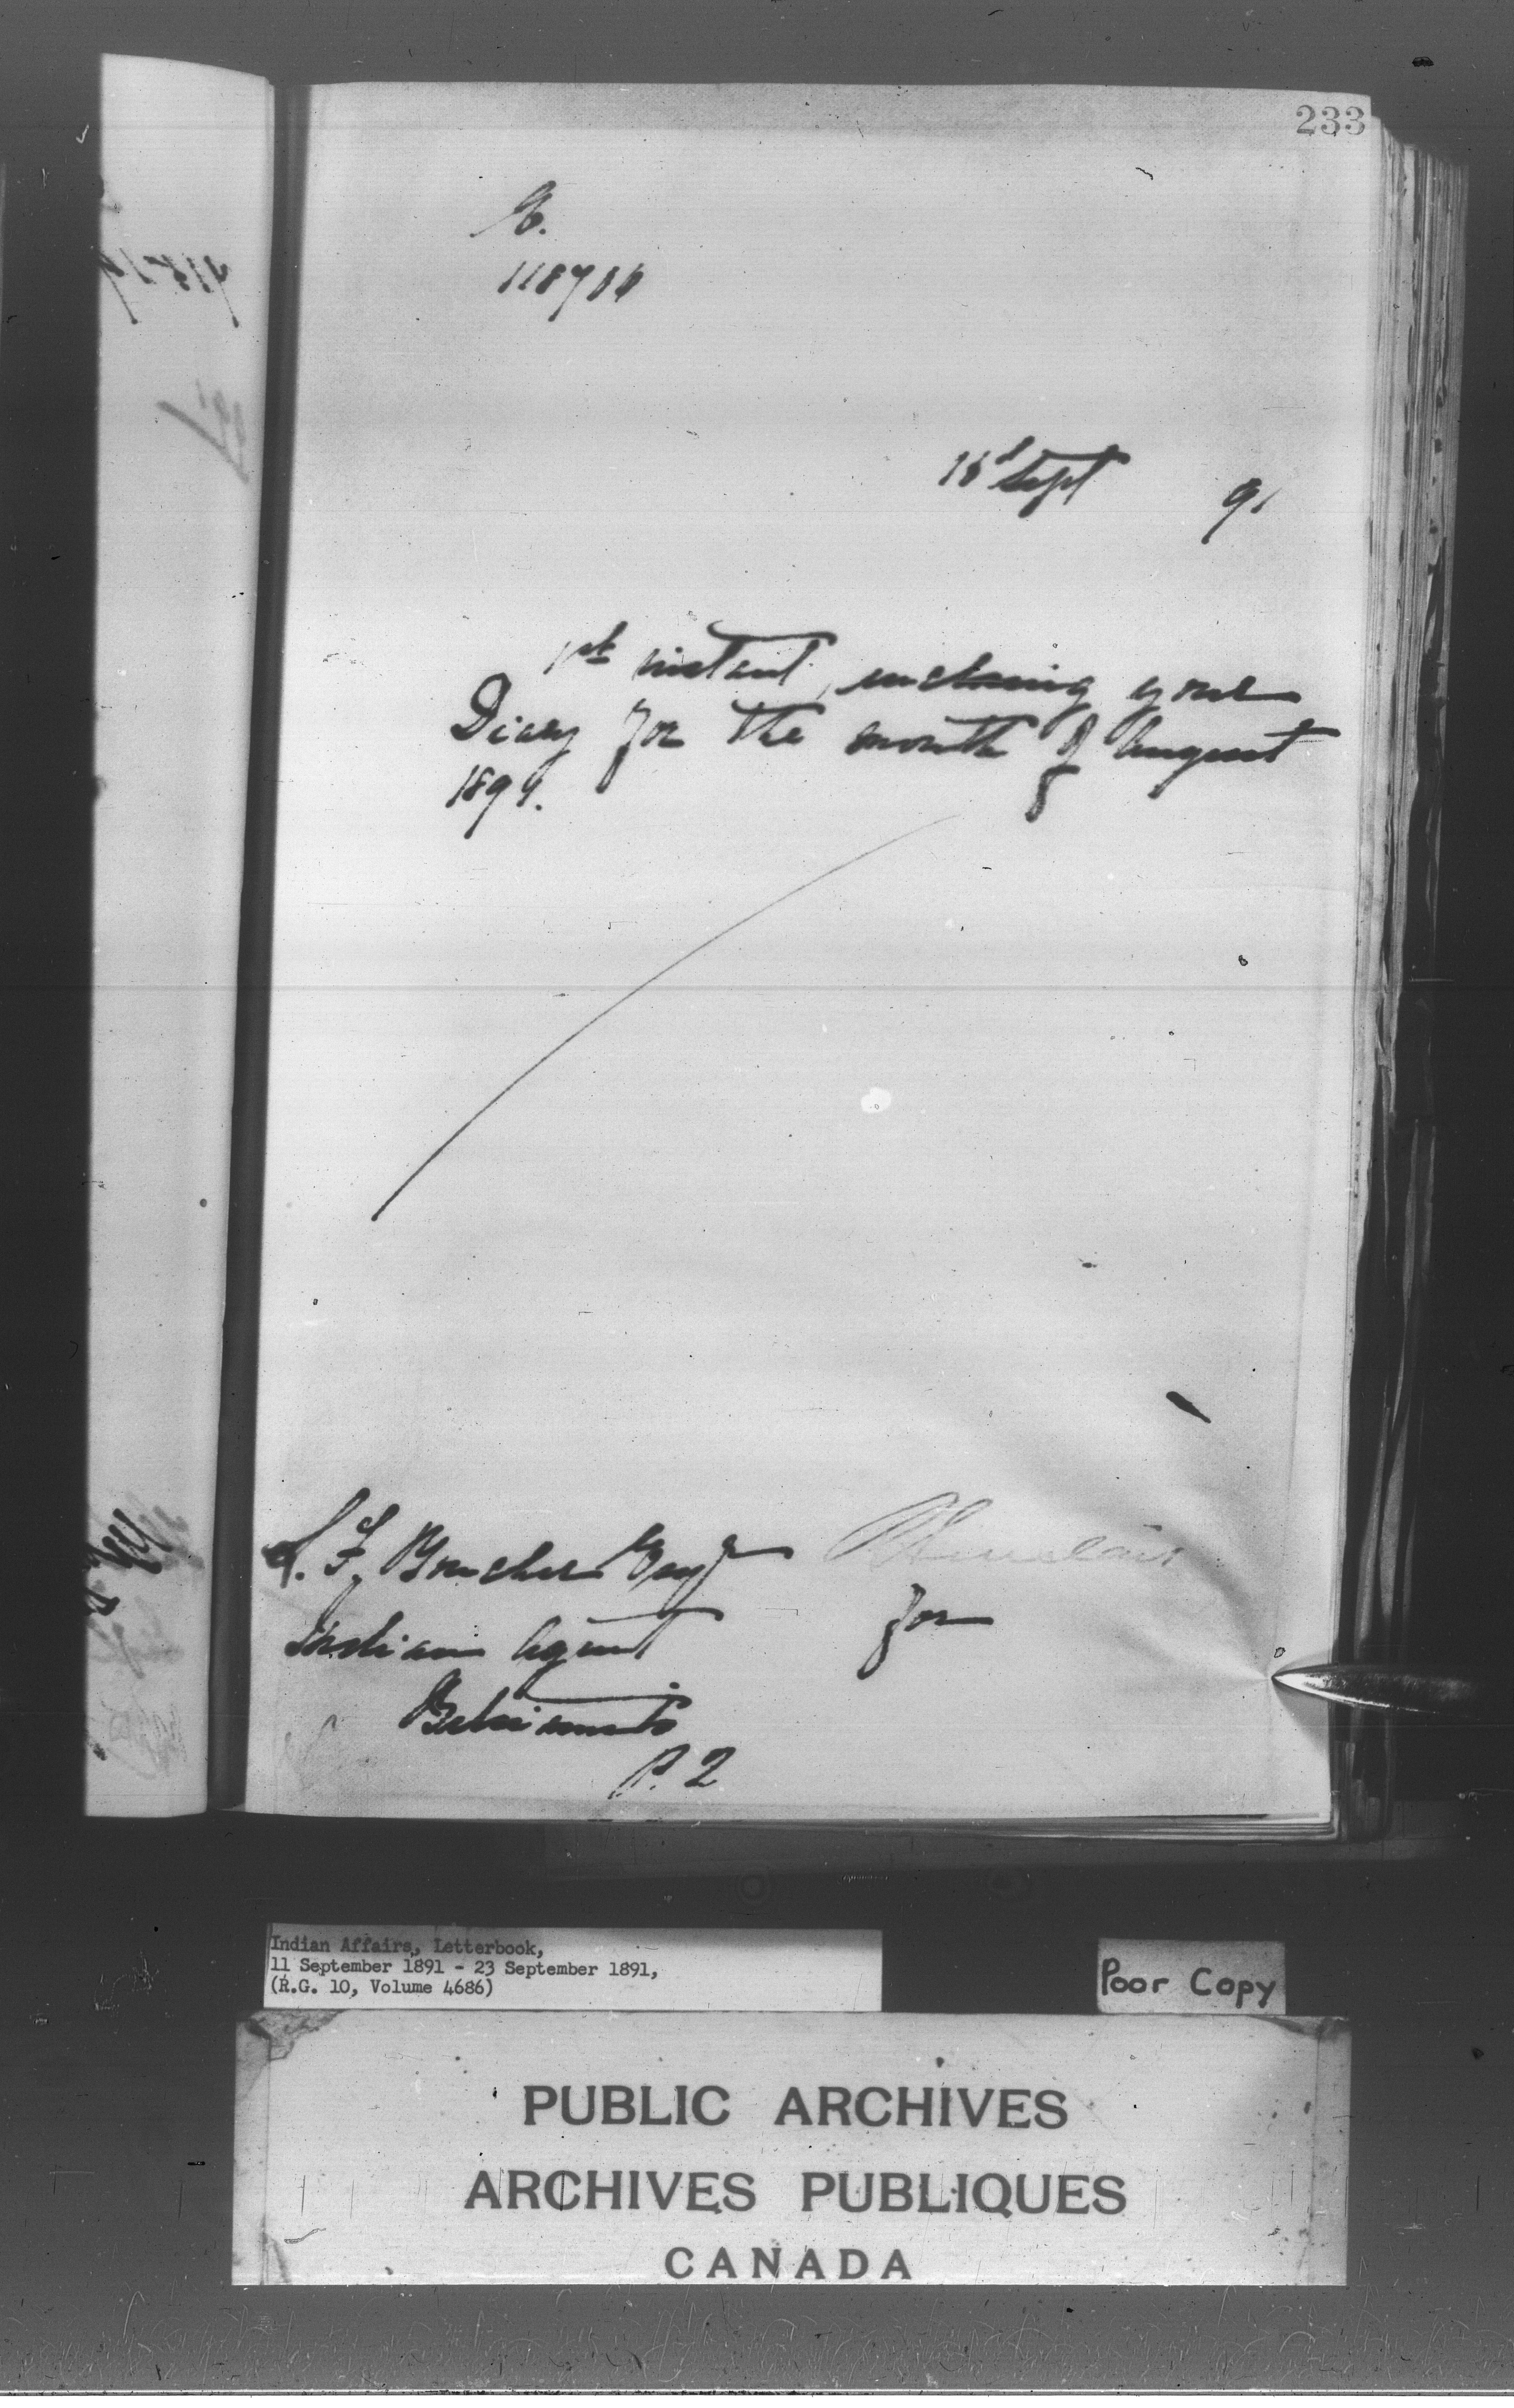 233
1st instant, enclosing your
Diary for the month of August
1891.
Sept 91
L. F. Boucher Esq
Indian Agent
for
Betsiamits
P. 2
Indian Affairs, Letterbook,
11 September 1891 - 23 September 1891,
(R.G. 10, Volume 4686)
Poor Copy
PUBLIC ARCHIVES
ARCHIVES PUBLIQUES
CANADA